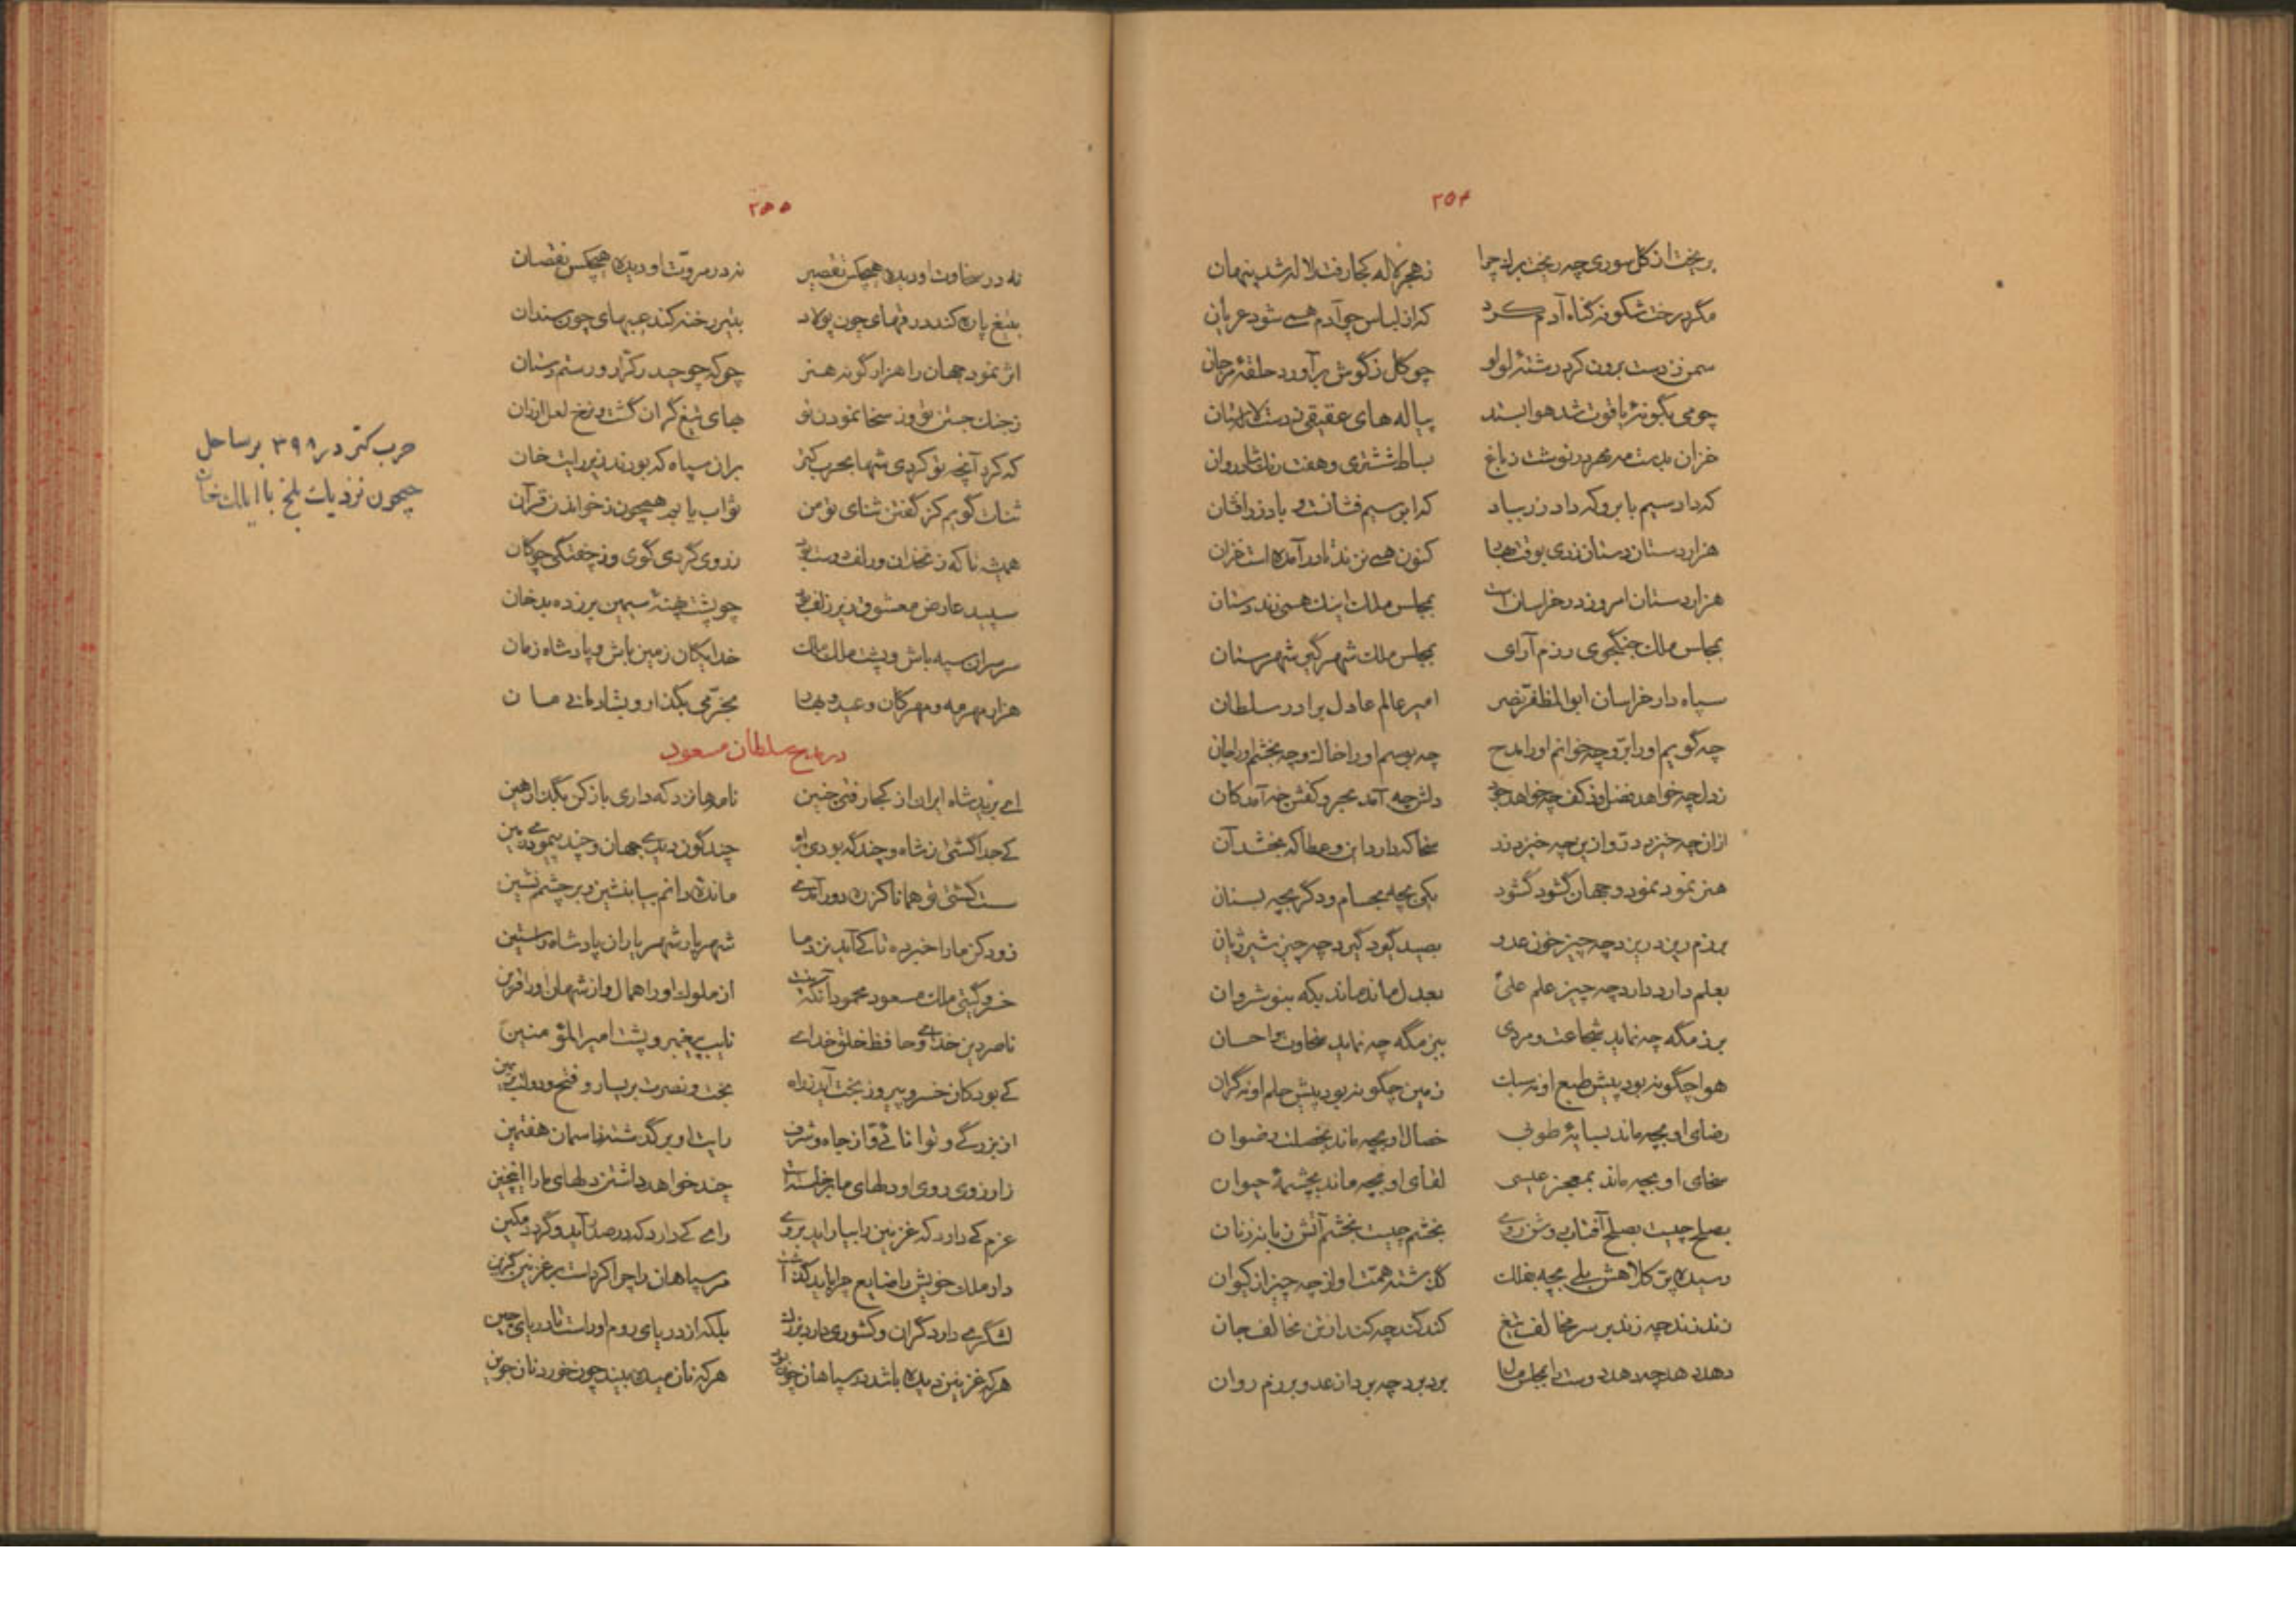 ۲۵۴
بریخت از گل سوری چه ریخت برک چرا ز هجر لاله کجا رفت لاله شد پنهان
مگر درخت شکوفه گناه آدم کرد که از لباس چو آدم همی شود عریان
سمن ز دست برون کرد رشتهٔ لولو چو گل ز گوش برآورد حلقهٔ مرجان
چو می بگونهٔ یاقوت شد هوا بستد پیاله های عقیقی ز دست لالستان
خزان بدست مه مهر در نوشت ز باغ بساط ششتری و هفت رنگ شادروان
که داد سیم بابر و که داد زر بباد که ابر سیم فشانست و باد زر افشان
هزاردستان دستان زدی بوقت بهار کنون همی نزند تا در آمده است خزان
هزار دستان امروز در خراسان است بمجلس ملک اینک همی زند دستان
بمجلس ملک جنگجوی رزم آرای بمجلس ملک شهرگیر شهرستان
سپاه دار خراسان ابوالمظفر نصر امیر عالم عادل برادر سلطان
چه گویم او را بر و چه خوانم او را مدح چه بوسم او را خاک و چه بخشم او را جان
ز دل چه خواهد فضل و ز کف چه خواهد جود دلش چه آمد بحر و کفش چه آمد کان
ازان چه خیزد در و ازین چه خیزد زر سخا که دارد این و عطا که بخشد آن
هنر نمود نمود و جهان گشود گشود یکی بچه بحسام و دگر بچه بسنان
برزم ریزد ریزد چه چیز خون عدو بصید گیرد گیرد چه چیز شیر ژیان
بعلم دارد دارد چه چیز علم علی بعدل ماند ماند بکه بنوشروان
برزمگه چه نماید شجاعت و مردی ببزمگه چه نماید سخاوت و احسان
هوا چگونه بود پیش طبع او نه سبک زمین چگونه بود پیش حلم او نه گران
رضای او بچه ماند بسایهٔ طوبی خصال او بچه ماند بخصلت رضوان
سخای او بچه ماند بمعجز عیسی لقای او بچه ماند بچشمهٔ حیوان
بصلح چیست بصلح آفتاب روشن روی بخشم چیست بخشم آتش زبانه زنان
رسیده بر کلاهش بلی بچه بفلک گذشته همت او از چه چیز از کیوان
زند زند چه زند بر سر مخالف تیغ کند کند چه کند از تن مخالف جان
دهد دهد چه دهد دوست را بمجلس مال برد برد چه برد از عدو برزم روان
۲۵۵
نه در سخاوت او دیده هیچکس تقصیر نه در مروت او دیده هیچکس نقصان
بتیغ پاره کند درقهای چون پولاد بتیر رخنه کند عیبهای چون سندان
اثر نمود جهان را هزار گونه هنر چو که چو حیدر کرار و رستم دستان
ز جنگ جستن تو وز سخا نمودن تو بهای تیغ گران گشت و نرخ لعل ارزان
که کرد آنچه تو کردی شها بحرب کتر بران سپاه که بودند زیر رایت خان
ثنات گویم کز گفتن ثنای تو من ثواب یابم همچون ز خواندن قرآن
همیشه تا که زنخدان و زلف دوست بود ز روی گردی گوی و ز خفتگی چوگان
سپید عارض معشوق زیر زلف سیاه چو پشتهٔ سیمین برزده بدخان
سر سران سپه باش و پشت ملک ملک خدایگان زمین باش و پادشاه زمان
هزار مهرمه و مهرگان و عید و بهار بخرمی بگذار و بشادمانی مان
در مدح سلطان مسعود
ای برید شاه ایران از کجا رفتی چنین نامه ها نزد که داری بازکن بگذار هین
کی جدا گشتی ز شاه و چند گه بودی براه چندگون دیدی جهان و چند پیمودی زمین
سست گشتی تو همانا کز ره دور آمدی مانده دانم بیا بنشین و بر چشمم نشین
زود کن ما را خبر ده تا کی آید نزد ما شهریار شهریاران پادشاه راستین
خسرو گیتی ملک مسعود محمود آنکه نیست از ملوک او را همال و از شهان او را قرین
ناصر دین خدای و حافظ خلق خدای نایب پیغمبر و پشت امیرالمؤمنین
کی بود کان خسرو پیروز بخت آید ز راه بخت و نصرت بر یسار و فتح و دولت بر یمین
از بزرگی و توانائی و از جاه و شرف رایت او برگذشته ز آسمان هفتمین
ز آرزوی روی او دلهای ما برخاسته است چند خواهد داشتن دلهای ما را اینچنین
عزم کی دارد که غزنین را بیاراید بروی رای کی دارد که در صدر آید و گردد مکین
دار ملک خویش را ضایع چرا باید گذاشت مر سپاهان را چرا کرده است بر غزنین گزین
لشگری دارد گران و کشوری دارد بزرگ بلکه از دریای روم او راست تا دریای چین
هرکه غزنین دیده باشد در سپاهان چون بود هرکه نان میده بیند چون خورد نان جوین
حرب کتر در ۳۹۸ بر ساحل
جیحون نزدیک بلخ با ایلک خان